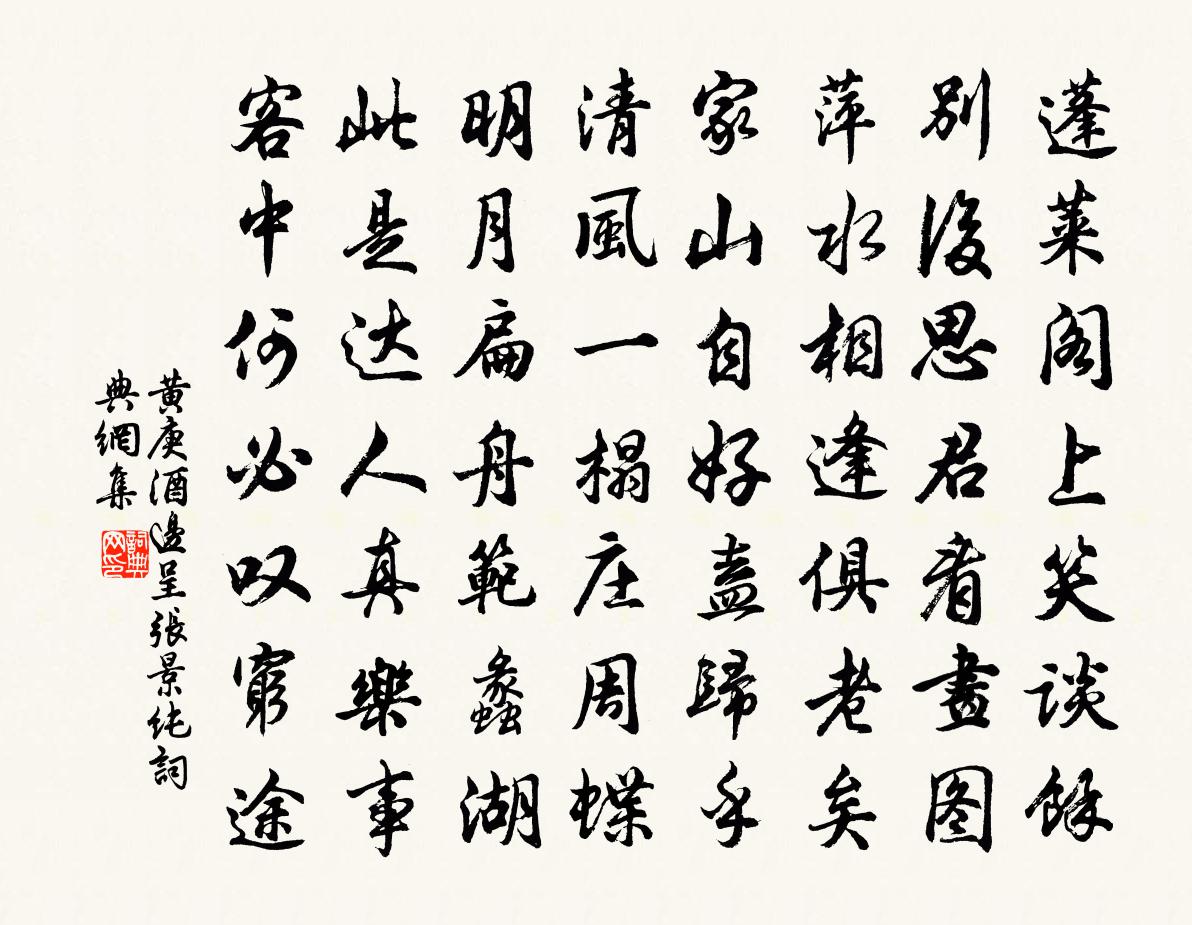 蓬莱阁上笑谈餘
别後思君看畫图
萍水相逢俱老矣
家山自好盍歸乎
清風一榻庄周蝶
明月扁舟範蠡湖
此是达人真樂事
客中何必叹窮途
黄庚酒邊呈張景纯詞
典網集
詞典网印